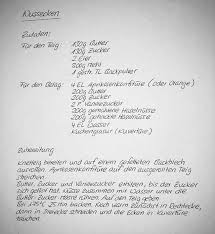 Nussecken
Zutaten:
Für den Teig: 150g Butter
130g Zucker
2 Eier
300g Mehl
1 gestr. TL Backpulver
Für den Belag: 4 EL Aprikosenkonfitüre (oder Orange)
200g Butter
200g Zucker
2 P. Vanillezucker
200g gemahlene Haselnüsse
200g gehackte Haselnüsse
4 EL Wasser
Kuchenglasur (Kuvertüre)
Zubereitung
Knetteig bereiten und auf einem gefetteten Backblech
ausrollen. Aprikosenkonfitüre auf den ausgerollten Teig
streichen.
Butter, Zucker und Vanillezucker erhitzen, bis der Zucker
sich gelöst hat. Nüsse zusammen mit Wasser unter die
Butter-Zucker Masse rühren. Auf den Teig geben.
Bei 175°C 25 min backen. Noch warm zunächst in Rechtecke,
dann in Dreiecke schneiden und die Ecken in Kuvertüre
tauchen.